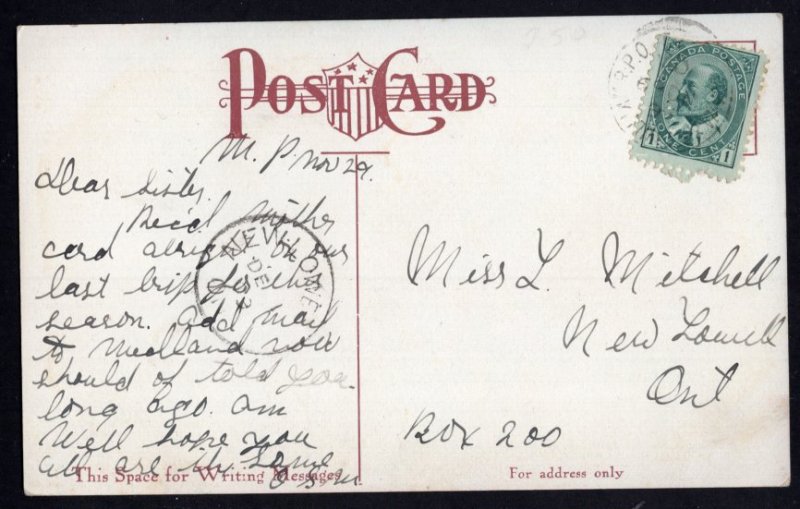 POST CARD
CANADA POSTAGE
1 ONE CENT 1
R.P.O.
M. P. Nov 29.
Dear Sister.
Rec'd Mother
card alright. On our
last trip for the
season. add mail
to Midland now
should of told you
long ago. am
Well hope you
all are the Same
NEW LOWE
DE 2
Miss L. Mitchell
New Lowell
Ont
Box 200
This Space for Writing Messages
For address only